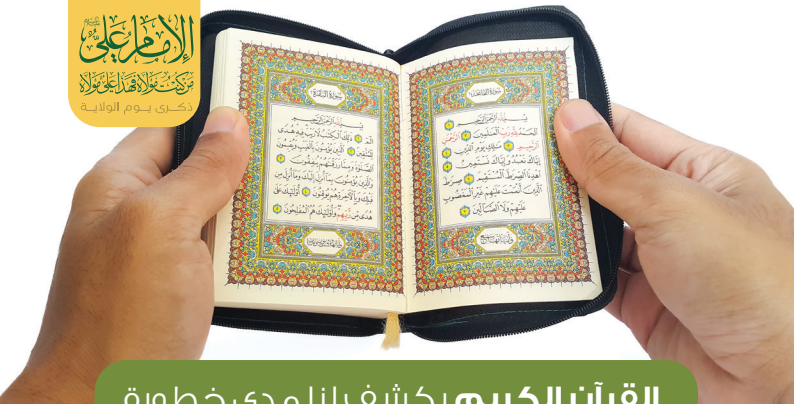 الإمام علي
من كنت مولاه فهذا علي مولاه
ذكرى يوم الولاية
سورة الفاتحة
بسم الله الرحمن الرحيم
الحمد لله رب العلمين الرحمن
الرحيم ملك يوم الدين
إياك نعبد وإياك نستعين
اهدنا الصرط المستقيم صرط
الذين أنعمت عليهم غير المغضوب
عليهم ولا الضالين
وآياتها سبع
سورة البقرة
بسم الله الرحمن الرحيم
الم ذلك الكتب لا ريب فيه هدى
للمتقين الذين يؤمنون بالغيب ويقيمون
الصلوة ومما رزقنهم ينفقون
والذين يؤمنون بما أنزل إليك وما أنزل من
قبلك وبالآخرة هم يوقنون أولئك على
هدى من ربهم وأولئك هم المفلحون
القرآن الكريم يكشف لنا مدى خطورة